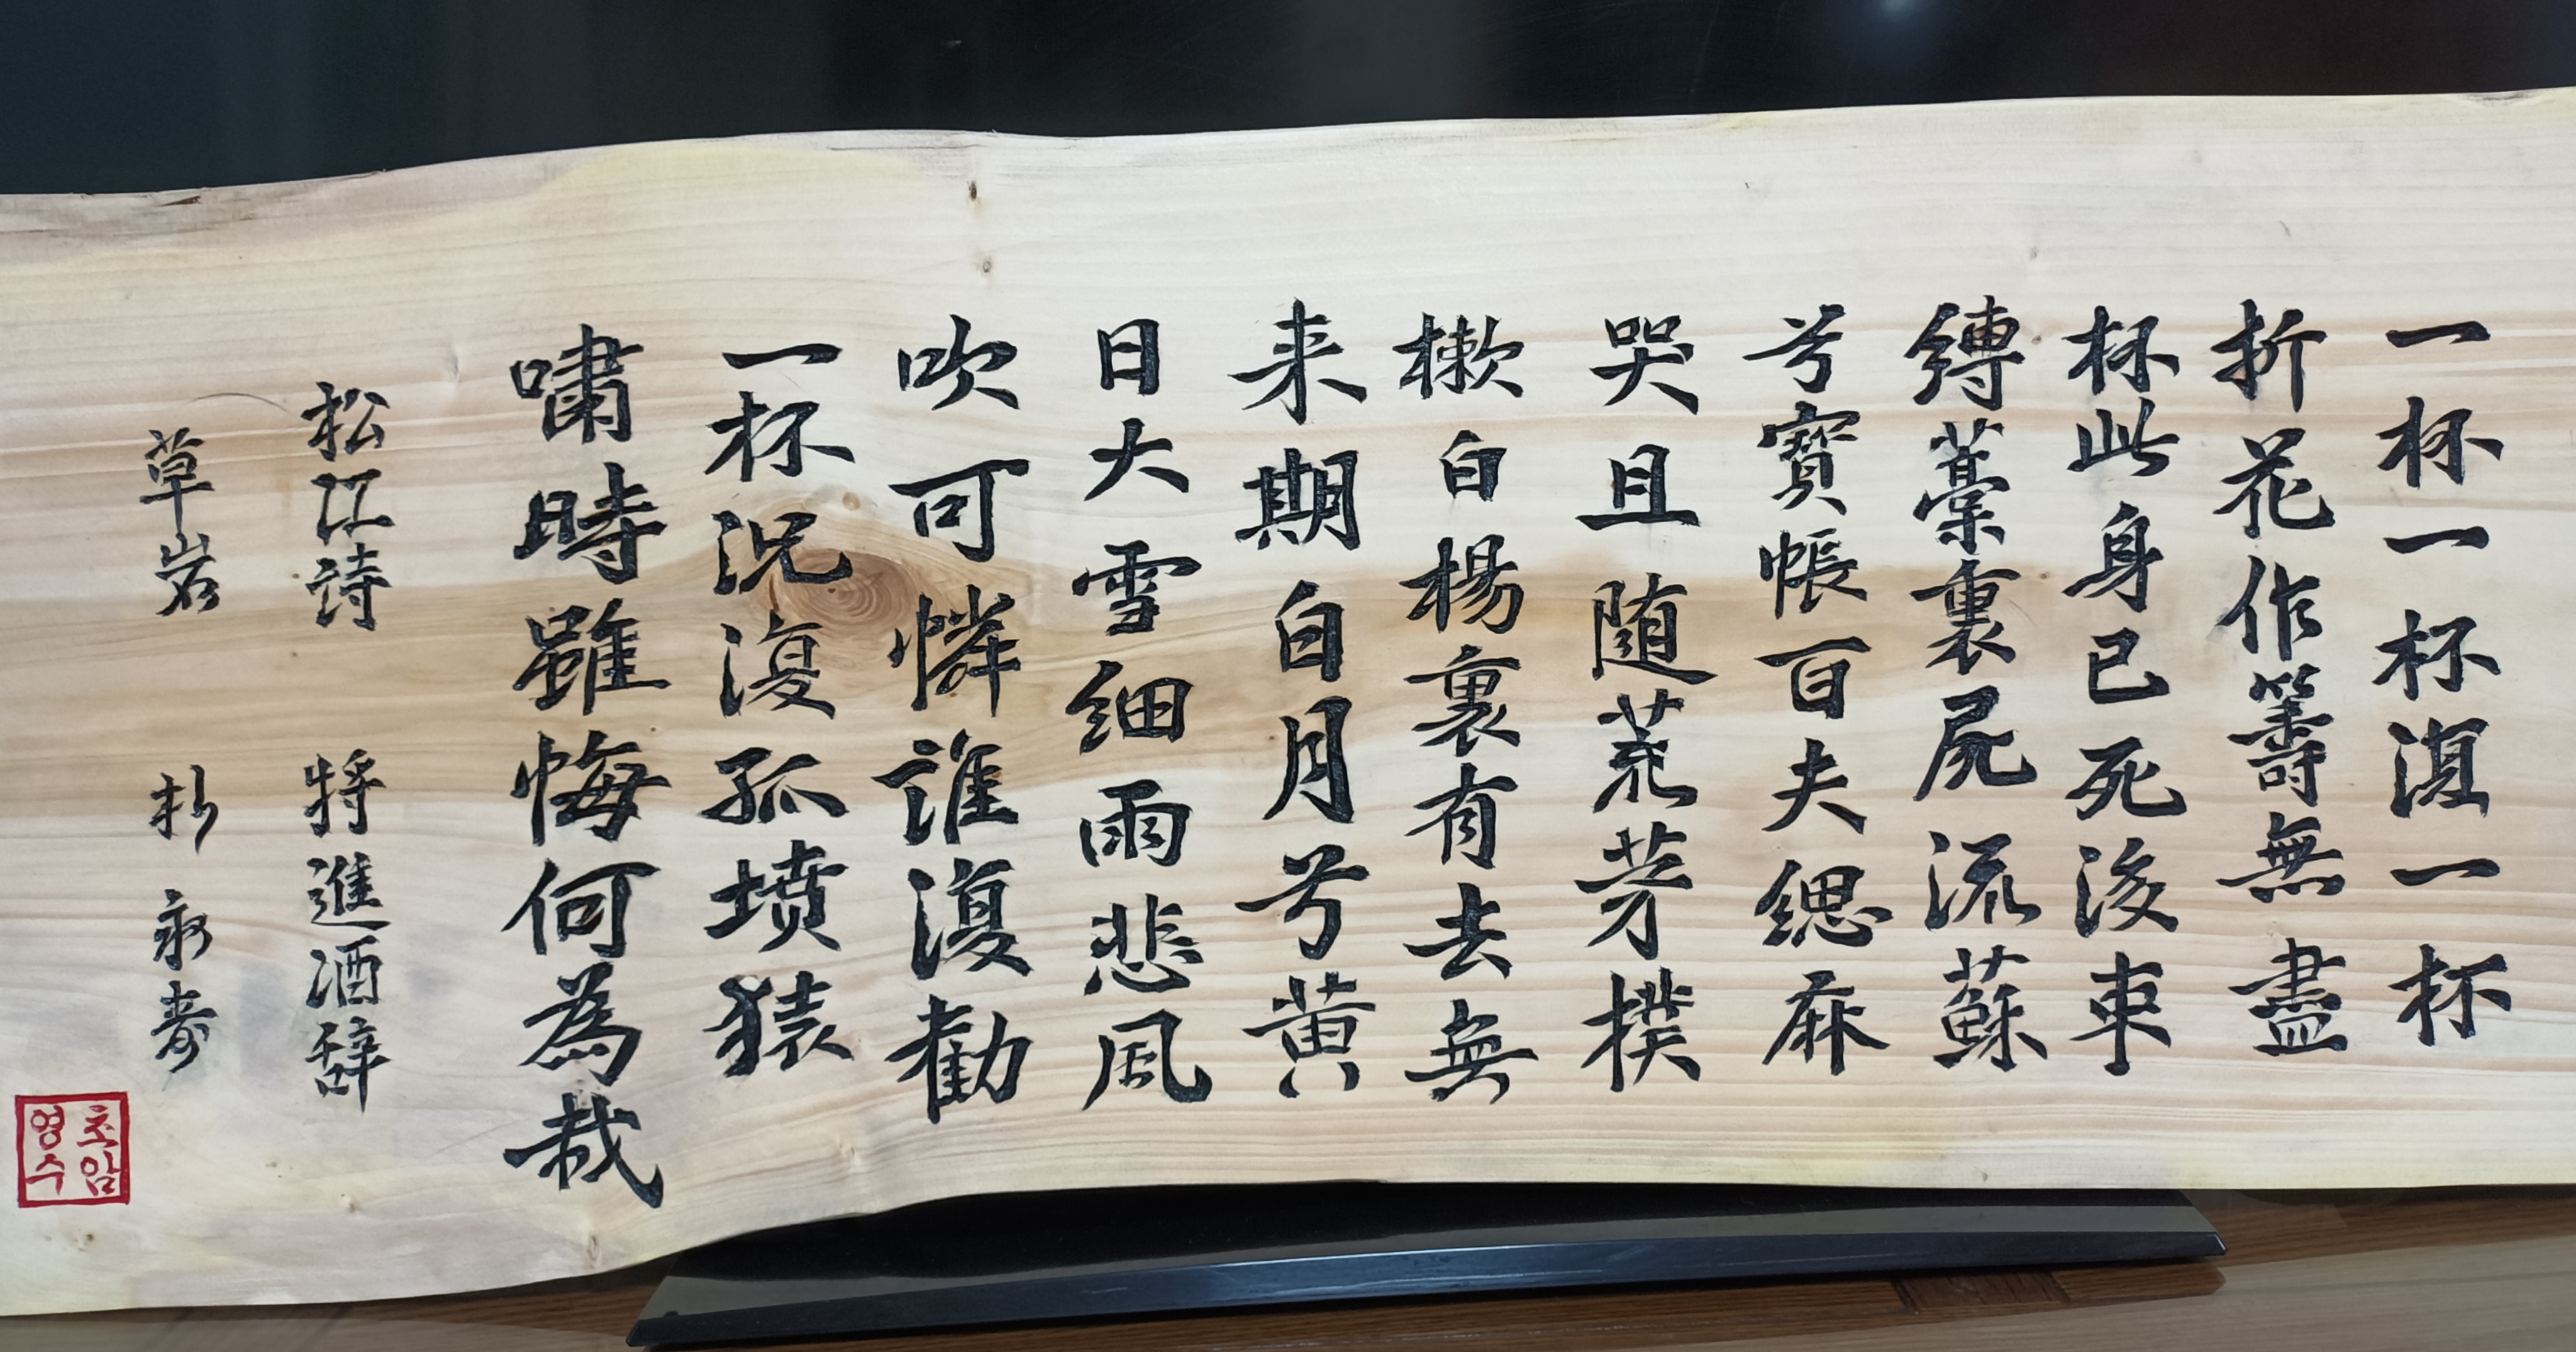 一杯一杯復一杯
折花作籌無盡
杯此身已死後束
縛藁裏屍流蘇
兮寶帳百夫緦麻
哭且随荒茅樸
樕白楊裏有去無
来期白月兮黄
日大雪細雨悲風
吹可憐誰復勸
一杯況復孤墳猿
嘯時雖悔何為哉
松江詩 将進酒辞
草岩 朴永壽
초암
영수